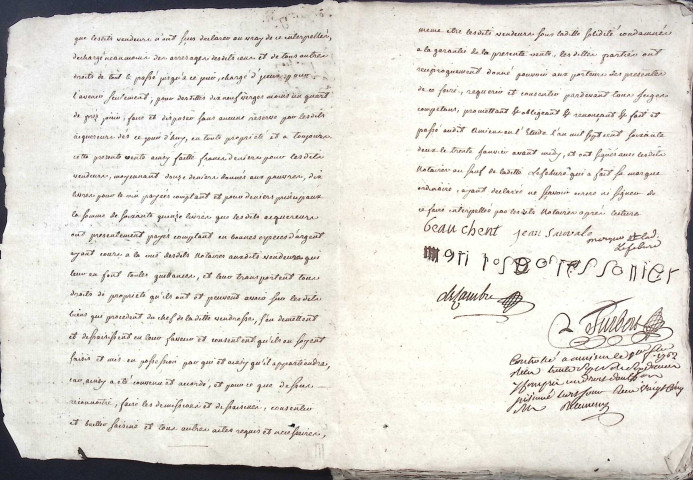 que lesdits vendeurs n'ont sceu declarer au vray de ce interpellés,
déchargé neanmoins des arrerages desdits cens et de tous autres
droits de tout le passé jusqu'à ce jour, chargé d'iceux pour
l'avenir seulement, pour desdittes dix neuf verges moins un quart
de prez jouir, faire et disposer sans aucune reserve par lesdits
acquereurs dès ce jour d'huy, en toute propriété et a toujours
cette presente vente ainsy faitte francs deniers pour lesdits
vendeurs, moyennant douze deniers donnés aux pauvres, dix
livres pour le vin payées comptant et pour deniers principaux
la somme de soixante quinze livres que lesdits acquereurs
ont presentement payée comptant en bonnes especes d'argent
ayant cours a la vue desdits notaires auxdits vendeurs que
leur en font toutes quittances, et leur transportent tous
droits de propriété qu'ils ont et peuvent avoir sur lesdits
biens qui procedent du chef de laditte venderesse, s'en demettent
et dessaisissent en leur faveur et consentent qu'ils en soyent
saisis et mis en possession par qui et ainsy qu'il appartiendra,
car ainsy a été convenu et accordé, et pour ce que dessus
reconnoitre, faire les demissions et dessaisine, consentir
et bailler saisine et tous autres actes requis et necessaires,
meme etre lesdits vendeurs sous laditte solidité condamnés
a la garantie de la presente vente, lesdittes parties ont
reciproquement donné pouvoir aux porteurs des presentes
de ce faire, requerir et consentir pardevant tous juges
competens, promettant & obligeant & renonçant & fait et
passé audit Amiens en l'Etude l'an mil sept cent soixante
deux le trente Janvier avant midy, et ont signés avec lesdits
notaires au sauf de laditte Lefebure qui a fait sa marque
ordinaire, ayant declaré ne sçavoir ecrire ni signer de
ce faire interpellés par lesdits notaires après lecture
beauchent jean
marque de lad.
Lefebure
Delambre
Turbert
Controllé a amiens le 1762